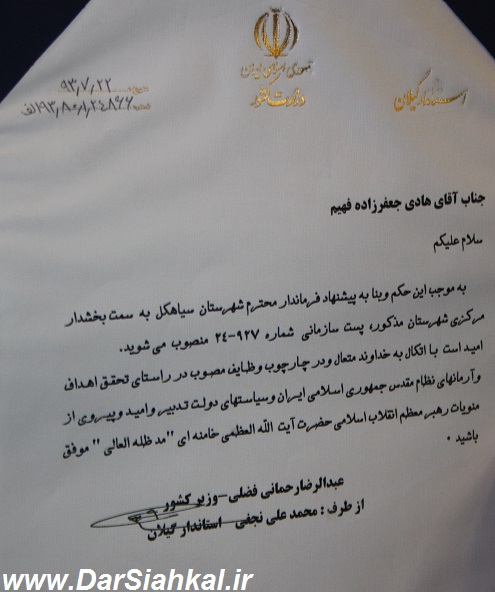 جمهوری اسلامی ایران
وزارت کشور
استانداری گیلان
۹۳٫۷٫۲۲
جناب آقای هادی جعفرزاده فهیم
سلام علیکم
به موجب این حکم وبنا به پیشنهاد فرماندار محترم شهرستان سیاهکل به سمت بخشدار
مرکزی شهرستان مذکور، پست سازمانی شماره ۹۲۷-۲۴ منصوب می شوید.
امید است با اتکال به خداوند متعال ودر چارچوب وظایف مصوب در راستای تحقق اهداف
وآرمانهای نظام مقدس جمهوری اسلامی ایران وسیاستهای دولت تدبیر وامید وپیروی از
منویات رهبر معظم انقلاب اسلامی حضرت آیت الله العظمی خامنه ای "مد ظله العالی" موفق
باشید .
عبدالرضارحمانی فضلی-وزیر کشور
از طرف : محمد علی نجفی استاندار گیلان
www.DarSiahkal.ir